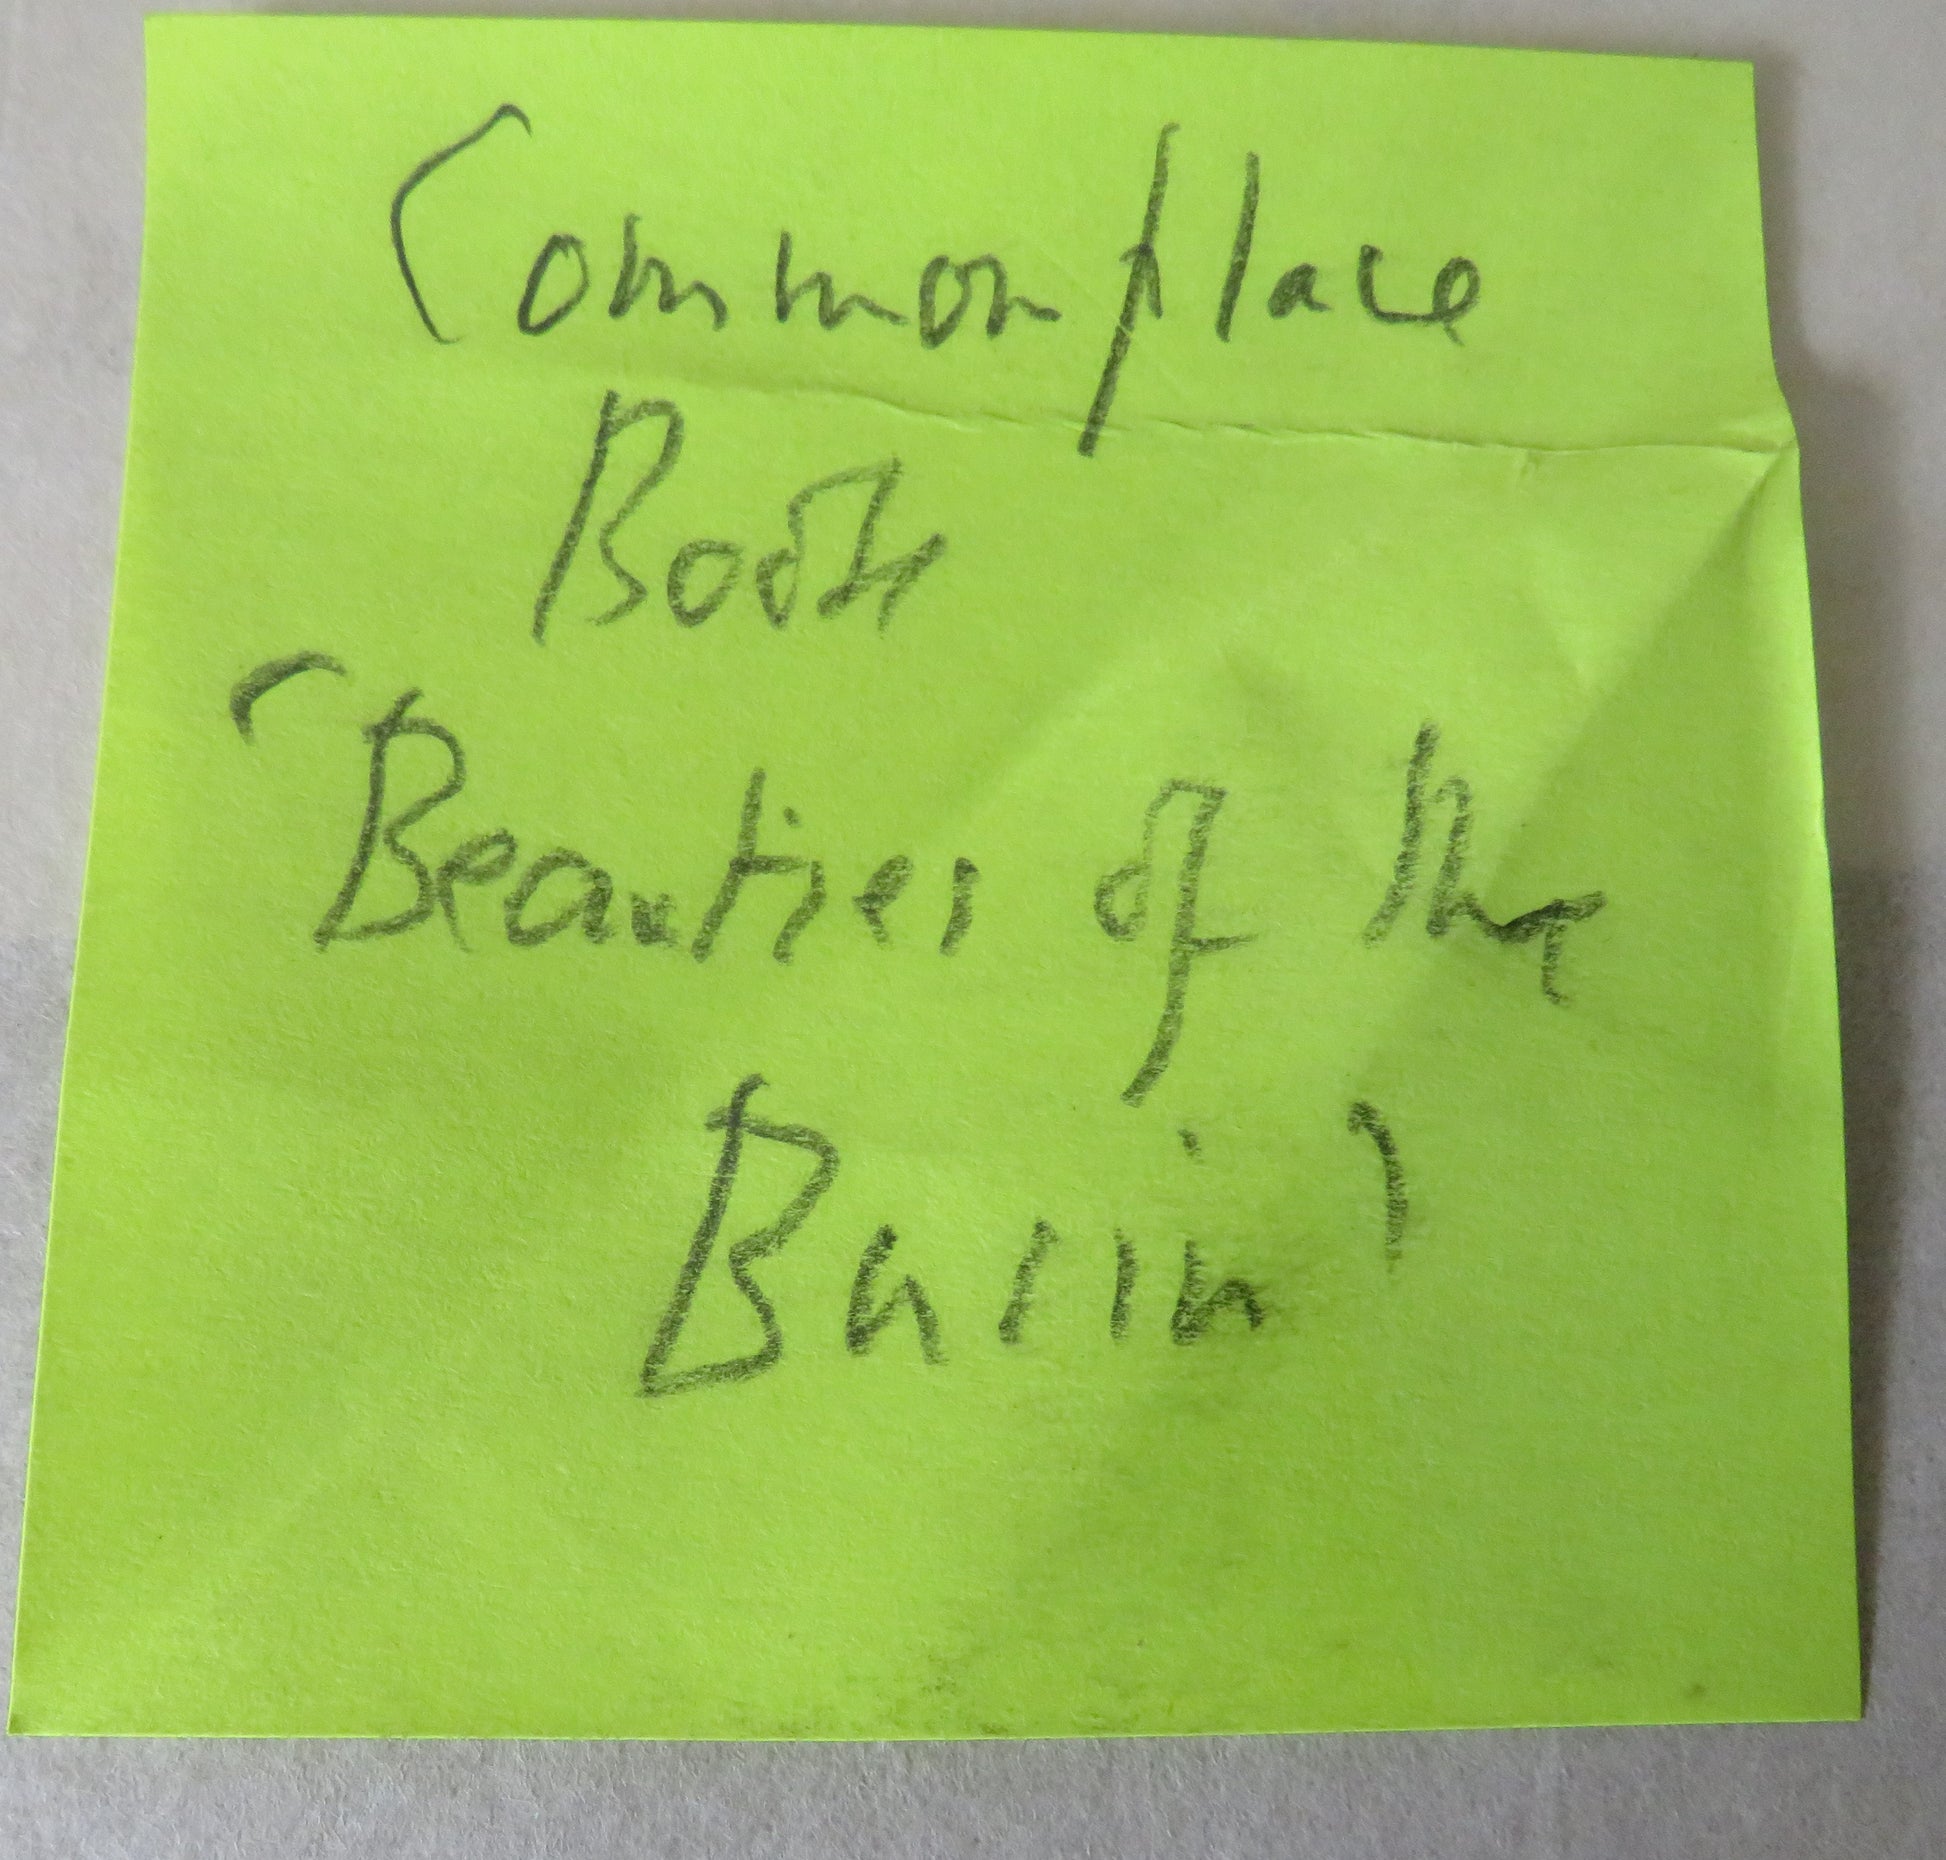 Commonplace
Book
'Beauties of the
Basin'